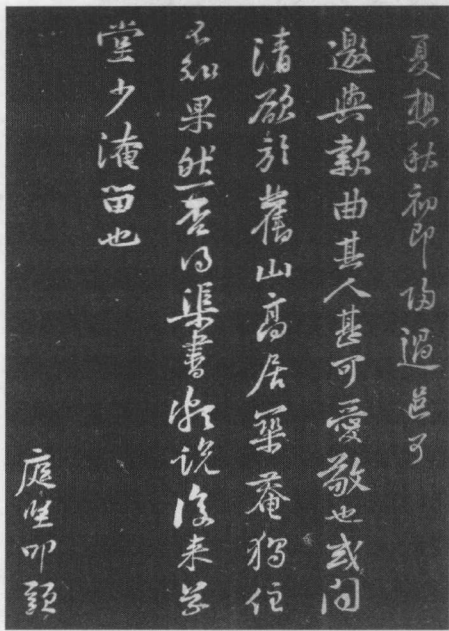 夏想秋初即歸過邑可
邀與款曲其人甚可愛敬也或聞
清欲於舊山高居築菴獨住
不知果然否得渠書頗說後来草
堂少淹留也
庭堅叩頭